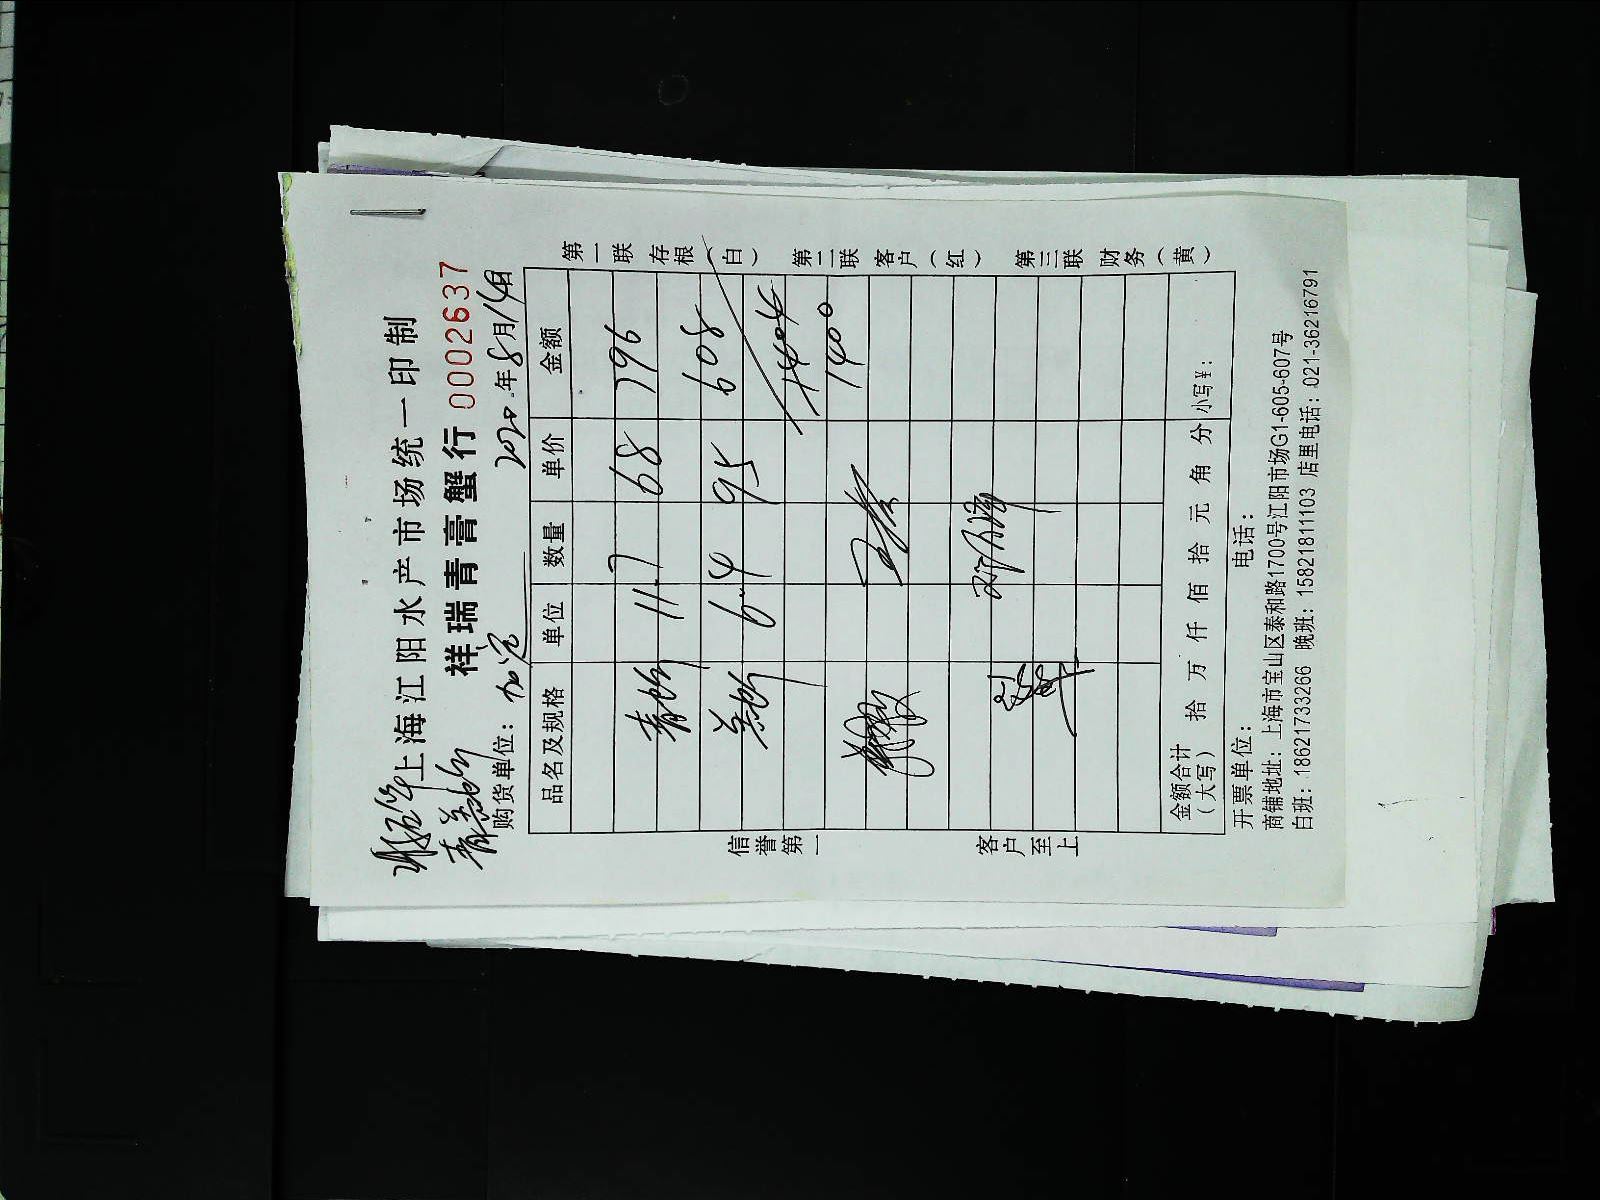 上海江阳水产市场统一印制
祥瑞青膏蟹行 0002637
购货单位： 2020年8月14日
品名及规格 单位 数量 单价 金额
青蟹 11.7 68 796
6.4 95 608
1404
1400
金额合计（大写） 拾 万 仟 佰 拾 元 角 分 小写¥：
开票单位： 电话：
商铺地址：上海市宝山区泰和路1700号江阳市场G1-605-607号
白班：18621733266 晚班：15821811103 店里电话：021-36216791
信誉第一 客户至上
第一联 存根（白） 第二联 客户（红） 第三联 财务（黄）